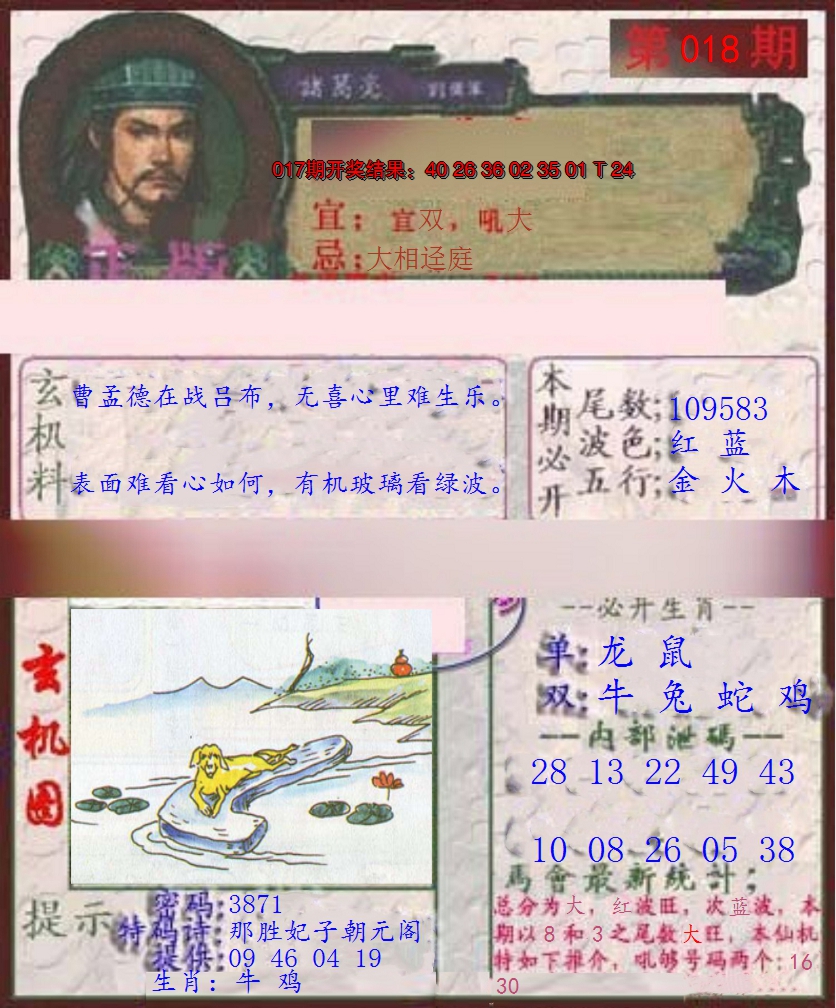 第 018 期
諸葛亮
017期开奖结果：40 26 36 02 35 01 T 24
宜；宜双，吼大
忌；大相迳庭
正版
玄机料
曹孟德在战吕布，无喜心里难生乐。
表面难看心如何，有机玻璃看绿波。
本期必开
尾数；109583
波色；红 蓝
五行；金 火 木
玄机图
--必开生肖--
单：龙 鼠
双：牛 兔 蛇 鸡
一一内部泄碼一一
28 13 22 49 43
10 08 26 05 38
提示
密码：3871
特码诗：那胜妃子朝元阁
提供：09 46 04 19
生肖：牛 鸡
馬會最新统計；
总分为大，红波旺，次蓝波，本
期以8和3之尾数大旺，本仙机
特如下推介，吼够号码两个：16
30